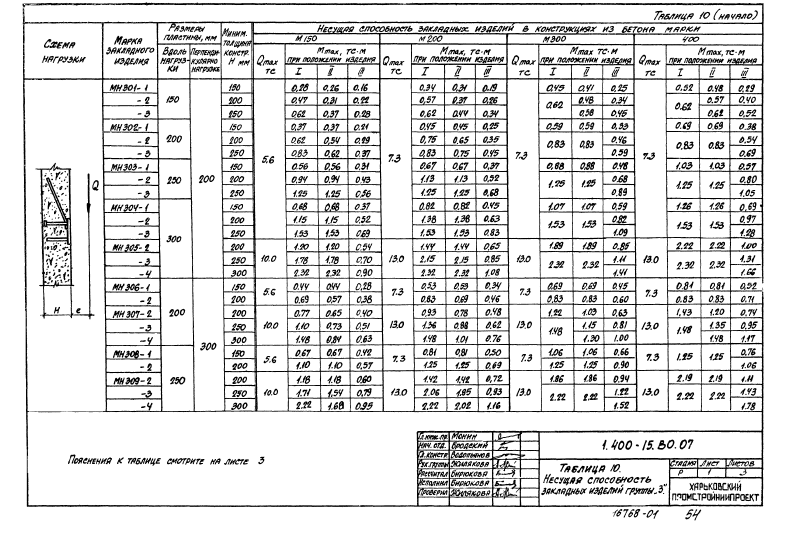 Таблица 10 (начало)
Схема нагрузки | Марка закладного изделия | Размеры пластины, мм | Миним. толщина констр. H мм | Несущая способность закладных изделий в конструкциях из бетона марки
Вдоль нагрузки | Перпендикулярно нагрузке | М150 | М200 | М300 | 400
Qmax тс | Mmax, тс·м при положении изделия | Qmax тс | Mmax, тс·м при положении изделия | Qmax тс | Mmax тс·м при положении изделия | Qmax тс | Mmax, тс·м при положении изделия
I II III | I II III | I II III | I II III
МН301-1 | 150 | 200 | 150 | 5.6 | 0,28 0,26 0.16 | 7.3 | 0,34 0,31 0.19 | 7.3 | 0,45 0,41 0,25 | 7.3 | 0.52 0,48 0,29
-2 | 200 | 0,47 0,31 0,22 | 0,57 0,37 0,26 | 0,62 0,48 0,34 | 0,62 0,57 0,40
-3 | 250 | 0,62 0,37 0,28 | 0,62 0,44 0,34 | 0,58 0,45 | 0,62 0,52
МН302-1 | 200 | 150 | 0,37 0,37 0,21 | 0,45 0,45 0,25 | 0,59 0,59 0,33 | 0,69 0,69 0,38
-2 | 200 | 0,62 0,54 0,29 | 0,75 0,65 0,35 | 0,83 0,83 0,46 | 0,83 0,83 0,54
-3 | 250 | 0,83 0,62 0,37 | 0,83 0,75 0,45 | 0.59 | 0,69
МН303-1 | 250 | 150 | 0,56 0,56 0,31 | 0,67 0,67 0,37 | 0,88 0,88 0,48 | 1,03 1,03 0,57
-2 | 200 | 0,94 0,94 0,43 | 1,13 1,13 0,52 | 1,25 1,25 0,68 | 1,25 1,25 0,80
-3 | 250 | 1,25 1.25 0,56 | 1,25 1.25 0,68 | 0,89 | 1.05
МН304-1 | 300 | 150 | 0,68 0,68 0,37 | 0,82 0,82 0,45 | 1,07 1,07 0,59 | 1,26 1,26 0,69
-2 | 200 | 1,15 1,15 0,52 | 1,38 1,38 0,63 | 1.53 1.53 0,82 | 1.53 1.53 0,97
-3 | 250 | 1,53 1,53 0,69 | 1,53 1,53 0,83 | 1.09 | 1,28
МН305-2 | 200 | 10.0 | 1.20 1,20 0,54 | 13.0 | 1,44 1,44 0,65 | 13.0 | 1.89 1.89 0,85 | 13.0 | 2.22 2.22 1.00
-3 | 250 | 1,78 1,78 0,70 | 2,15 2,15 0,85 | 2.32 2.32 1.11 | 2.32 2.32 1,31
-4 | 300 | 2.32 2.32 0,90 | 2.32 2.32 1.08 | 1.41 | 1.66
МН306-1 | 200 | 300 | 150 | 5.6 | 0,44 0,44 0,28 | 7.3 | 0,53 0,53 0,34 | 7.3 | 0,69 0,69 0,45 | 7.3 | 0,81 0,81 0,52
-2 | 200 | 0,69 0,57 0,38 | 0,83 0,69 0,46 | 0,83 0,83 0.60 | 0,83 0,83 0,71
МН307-2 | 200 | 10.0 | 0,77 0,65 0,40 | 13.0 | 0,93 0,78 0,48 | 13.0 | 1,22 1,03 0,63 | 13.0 | 1,43 1,20 0,74
-3 | 250 | 1,10 0,73 0,51 | 1,36 0,88 0,62 | 1.48 1,15 0,81 | 1.48 1,35 0,95
-4 | 300 | 1,48 0,84 0,63 | 1,48 1,01 0,76 | 1.30 1.00 | 1.48 1.17
МН308-1 | 250 | 150 | 5.6 | 0,67 0,67 0,42 | 7.3 | 0,81 0,81 0,50 | 7.3 | 1,06 1,06 0,66 | 7.3 | 1.25 1.25 0,76
-2 | 200 | 1,10 1,10 0,57 | 1,25 1,25 0,69 | 1,25 1,25 0.90 | 1.06
МН309-2 | 200 | 10.0 | 1,18 1,18 0,60 | 13.0 | 1,42 1,42 0,72 | 13.0 | 1.86 1.86 0,94 | 13.0 | 2.19 2.19 1.11
-3 | 250 | 1,71 1,54 0,79 | 2,06 1,85 0,93 | 2.22 2.22 1,22 | 2.22 2.22 1.43
-4 | 300 | 2,22 1,68 0,95 | 2,22 2,02 1.16 | 1.52 | 1.78
Q
H e
Пояснения к таблице смотрите на листе 3
Гл.инж.пр. Монин
Нач. отд. Бродский
Гл.констр. Водопьянов
Рук.группы Жилякова
Рассчитал Бирюкова
Исполнил Бирюкова
Проверил Жилякова
1.400-15.В0.07
Таблица 10.
Несущая способность
закладных изделий группы „3"
Стадия Лист Листов
Р 1 3
Харьковский
Промстройниипроект
16768-01 54